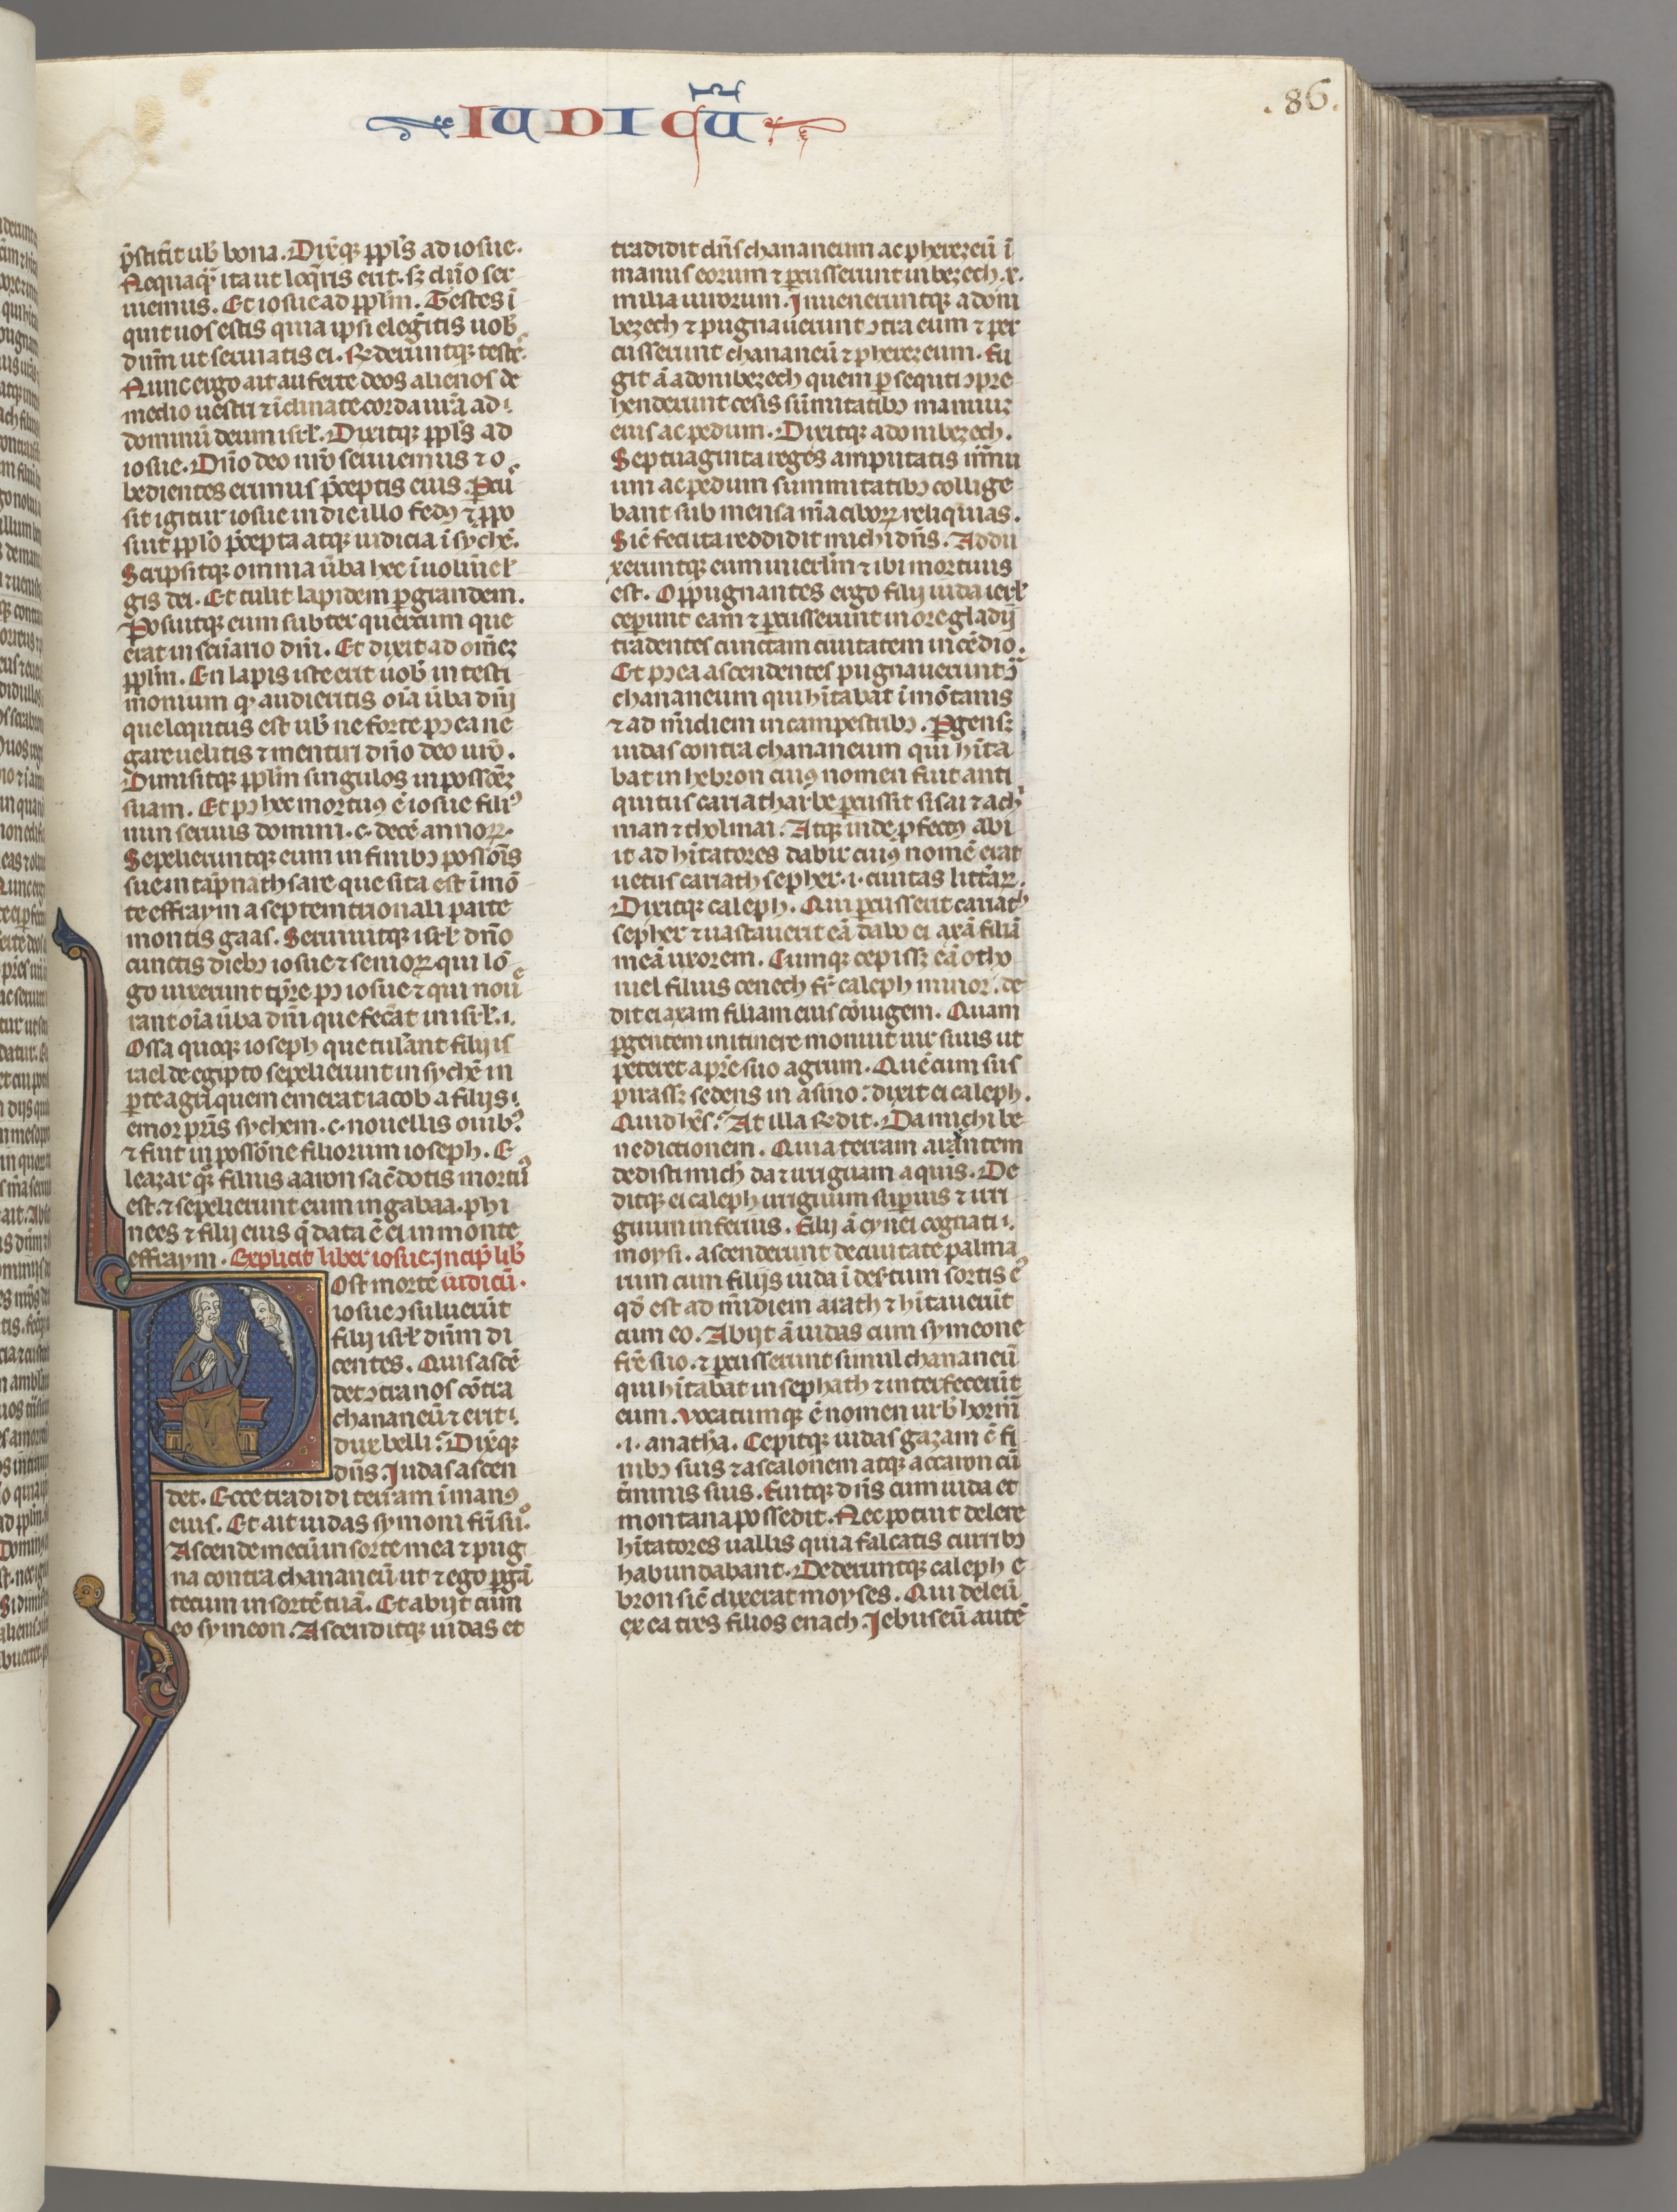 IUDICU̅
.86.
p̄stitit̄ ub̄ bona. Dix̄q; ppl̄s ad iosue.
Nequaq̄ ita ut loq̄ris erit. s; dn̄o ser
uiemus. Et iosue ad ppl̄m. Testes ī
quit uos estis quia ipsi elegītis uob̄
dn̄m ut seruiatis ei. R̄nderuntq; testē.
Nunc ergo ait auferte deos alienos de
medio uestri ⁊ īclinate corda urā ad
dominū deum isrl̄. Dixitq; ppl̄s ad
iosue. Dn̄o deo nrō seruiemus ⁊ o
bedientes erimus p̄ceptis eius. Pcu
sit igitur iosue in die illo fedꝰ ⁊ ppo
suit ppl̄o p̄cepta atq; iudicia ī sychē.
Scripsitq; omnia ūba hec ī uolūīe l̄
gis dei. Et tulit lapidem pgrandem.
Posuitq; eum subter quercum que
erat in sc̄uario dn̄i. Et dixit ad om̄ez
ppl̄m. En lapis iste erit uob̄ in testi
monium q audieritis oīa ūba dn̄i
que locutus est ub̄ ne forte pꝰea ne
gare uelitis ⁊ mentiri dn̄o deo urō.
Dimisitq; ppl̄m singulos in possōēz
suam. Et pꝰ hec mortuꝰ ē iosue filiꝰ
nun seruus domini .c. decē annoꝝ.
Sepelieruntq; eum in finibꝰ possōis
sue in tāpnathsare que sita est ī mō
te effraym a septemtrionali parte
montis gaas. Seruiuitq; isrl̄ dn̄o
cunctis diebꝰ iosue ⁊ senioꝝ qui lō
go uixerunt tp̄re pꝰ iosue ⁊ qui noue
rant oīa ūba dn̄i que fec̄at in isrl̄.
Ossa quoq; ioseph que tul̄ant filij is
rael de egipto sepelierunt in sychē in
pte agri quem emerat iacob a filijs
emor pr̄is sychem .c. nouellis ouibꝰ.
⁊ fuit in possōne filiorum ioseph. E
leazar q; filius aaron sac̄dotis mortuꝰ
est. ⁊ sepelierunt eum in gabaa. phi
nees ⁊ filij eius q̄ data ē ei in monte
effraym. Explicit liber iosue. Incip̄ lib̄
Ost mortē iudicū.
iosue ɔsuluerūt
filij isrl̄ dn̄m di
centes. Quis ascē
det ɔtra nos cōtra
chananeū ⁊ erit
dux belli? Dix̄q;
dn̄s. Iudas ascen
det. Ecce tradidi terram ī manꝰ
eius. Et ait iudas symoni fr̄i suo.
Ascende mecū in sorte mea ⁊ pug
na contra chananeū ut ⁊ ego pgā
tecum in sortē tuā. Et abijt cum
eo symeon. Ascenditq; iudas et
tradidit dn̄s chananeum ac pherezeū ī
manus eorum ⁊ pcusserunt in bezech .x.
milia uirorum. Inueneruntq; adoni
bezech ⁊ pugnauerunt ɔtra eum ⁊ per
cusserunt chananeū ⁊ pherezeum. Fu
git ā adonibezech quem psecuti ɔpre
henderunt cesis sūmitatibꝰ manuuꝫ
eius ac pedum. Dixitq; adonibezech.
Septuaginta reges amputatis manu
um ac pedum summitatibꝰ collige
bant sub mensa m̄a ciboꝝ reliquias.
Sic̄ feci ita reddidit michi dn̄s. Addu
xeruntq; eum in ierl̄m ⁊ ibi mortuus
est. Oppugnantes ergo filij iuda ierl̄
ceperunt eam ⁊ pcusserunt in ore gladij
tradentes cunctam ciuitatem incēdio.
Et pꝰea ascendentes pugnauerunt ɔ̄
chananeum qui hītabat ī mōtanis
⁊ ad m̄idiem in campestribꝰ. Pgensq;
iudas contra chananeum qui hīta
bat in hebron cuiꝰ nomen fuit anti
quitus cariatharbe pcussit sisai ⁊ achi
man ⁊ tholmai. Atq; inde pfectꝰ abi
it ad hītatores dabir cuiꝰ nomē erat
uetus cariath sepher .i. ciuitas litt̄aꝝ.
Dixitq; caleph. Qui pcusserit cariath
sepher ⁊ uastauerit eā dabo ei axā filiā
meā uxorem. Cumq; cepissꝫ eā otho
niel filius cenech fr̄ caleph minor. de
dit ei axam filiam eius cōiugem. Quam
pgentem in itinere monuit uir suus ut
peteret a pr̄e suo agrum. Quē cum sus
pirassꝫ sedens in asino: dixit ei caleph.
Quid hēs? At illa r̄ndit. Da michi be
nedictionem. Quia terram arantem
dedisti mich̄ da ⁊ irriguam aquis. De
ditq; ei caleph irriguum supius ⁊ irri
guum inferius. Filij ā cynei cognati
moysi. ascenderunt de ciuitate palma
rum cum filijs iuda ī desertum sortis eꝰ
qd̄ est ad m̄idiem arath ⁊ hītauerūt
cum eo. Abijt ā iudas cum symeone
fr̄e suo. ⁊ pcusserunt simul chananeū
qui hītabat in sephath ⁊ interfecerūt
eum. Vocatumq; ē nomen urb̄ horm̄
.i. anath̄a. Cepitq; iudas gazam c̄ fi
nibꝰ suis ⁊ ascalonem atq; accaron cū
t̄minis suis. Fuitq; dn̄s cum iuda et
montana possedit. Nec potuit delere
hītatores uallis quia falcatis curribꝰ
habundabant. Dederuntq; caleph e
bron sic̄ dixerat moyses. Qui deleū
ex ea tres filios enach. Iebuseū autē